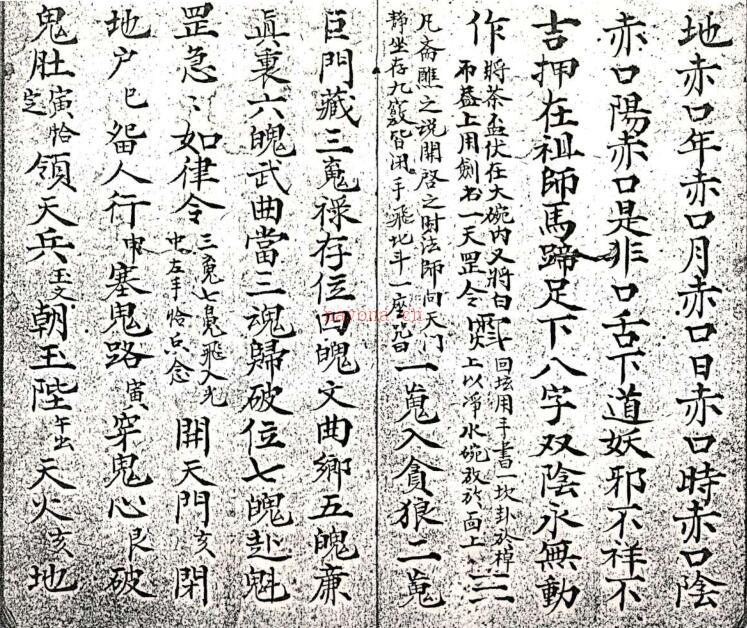 地赤口年赤口月赤口日赤口時赤口陰
赤口陽赤口是非口舌下道妖邪不祥不
吉押在祖師馬蹄足下八字双陰永無動
作將茶盃伏在大碗內又將白 回坛用手書一坎卦於棹
上用劍书一天罡令 上以淨水碗放於面上
凡斋醮之説開啓之时法師向天门
靜坐存九竅皆闭手飛地斗一座咒曰一䰟入貪狼二䰟
巨門藏三䰟禄存位四魄文曲鄉五魄廉
眞裏六魄武曲當三魂歸破位七魄赴魁
罡急〻如律令三䰟七魄飛入光
中左手恰点念開天門亥閉
地户巳畱人行申塞鬼路寅穿鬼心艮破
鬼肚寅恰領天兵玉文朝玉陛午出天火亥地
nayona.cn